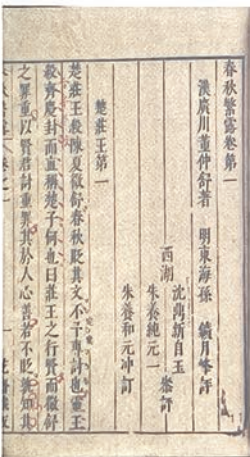 春秋繁露卷第一
漢廣川董仲舒著 明東海孫 鑛月峯評
西湖 沈鼎新自玉
朱養純元一 叅評
朱養和元冲訂
楚莊王第一
楚莊王殺陳夏徵舒春秋貶其文不予專討也靈王
殺齊慶封而直稱楚子何也曰莊王之行賢而徵舒
之罪重以賢君討重罪其於人心善若不貶孰知其